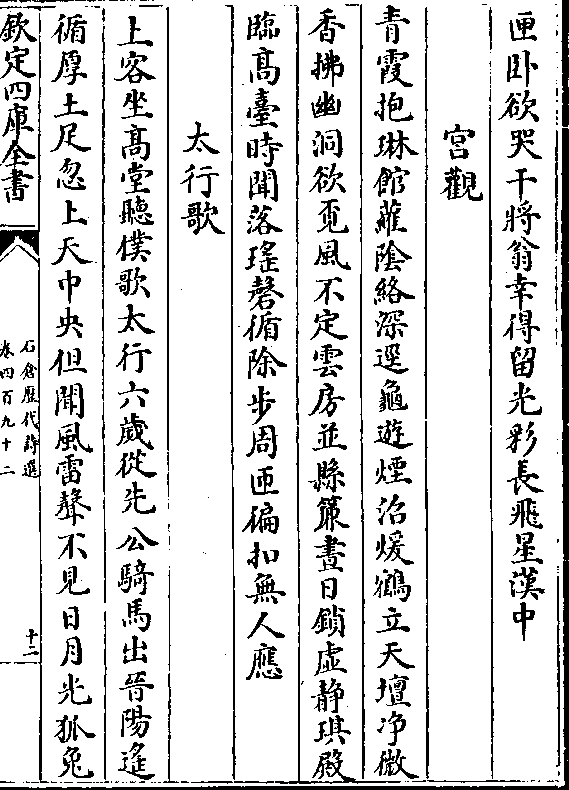 匣卧欲哭干將翁幸得留光彩長飛星漢中
宮觀
青霞抱琳館蘿陰絡深逕龜遊煙沼煖鶴立天壇净微
香拂幽洞欲覔風不定雲房並縣簾晝日鎖虚静琪殿
臨髙臺時聞落瑤磬循除步周匝徧扣無人應
太行歌
上客坐髙堂聽僕歌太行六歲從先公騎馬出晉陽遙
循厚土足忽上天中央但聞風雷聲不見日月光狐兔
欽定四庫全書
石倉歷代詩選
卷四百九十二
十二